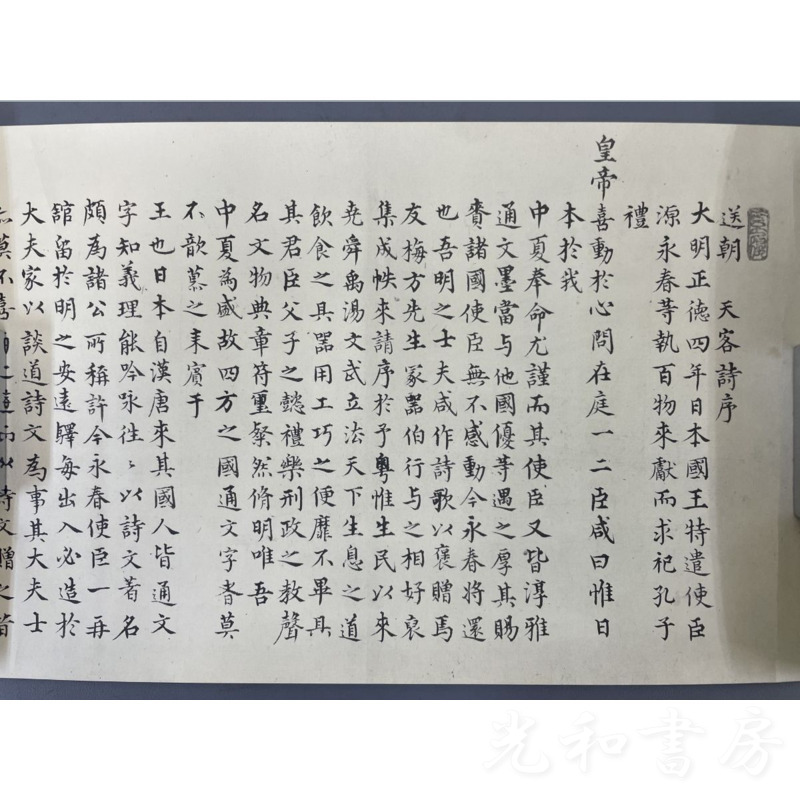 送朝　天客詩序
大明正德四年日本國王特遣使臣
源永春等執百物來獻而求祀孔子
禮
皇帝喜動於心問在庭一二臣咸曰惟日
本於我
中夏奉命尤謹而其使臣又皆淳雅
通文墨當与他國優等遇之厚其賜
賚諸國使臣無不感動今永春將還
也吾明之士夫咸作詩歌以褒贈焉
友梅方先生冢器伯行与之相好裒
集成帙來請序於予粵惟生民以來
堯舜禹湯文武立法天下生息之道
飲食之具器用工巧之便靡不畢具
其君臣父子之懿禮樂刑政之教聲
名文物典章符璽粲然脩明唯吾
中夏為盛故四方之國通文字者莫
不歆慕之来賓于
王也日本自漢唐來其國人皆通文
字知義理能吟咏往〻以詩文著名
頗為諸公所稱許今永春使臣一再
舘留於明之安遠驛每出入必造於
大夫家以談道詩文為事其大夫士
莫不喜
光和書房